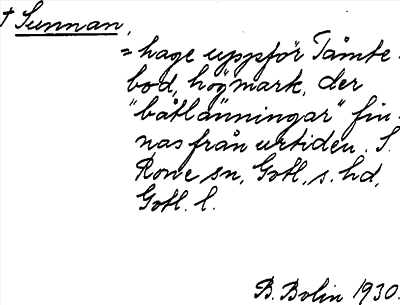 † Sunnan,
= hage uppför Tåmte-
bod, högmark, der
"båtlänningar" fin-
nas från urtiden. S.
Rone sn, Gotl. s. hd,
Gotl. l.
B. Bolin 1930.